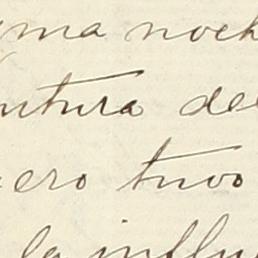 ma noch
utura del
ero tuvo
la influ